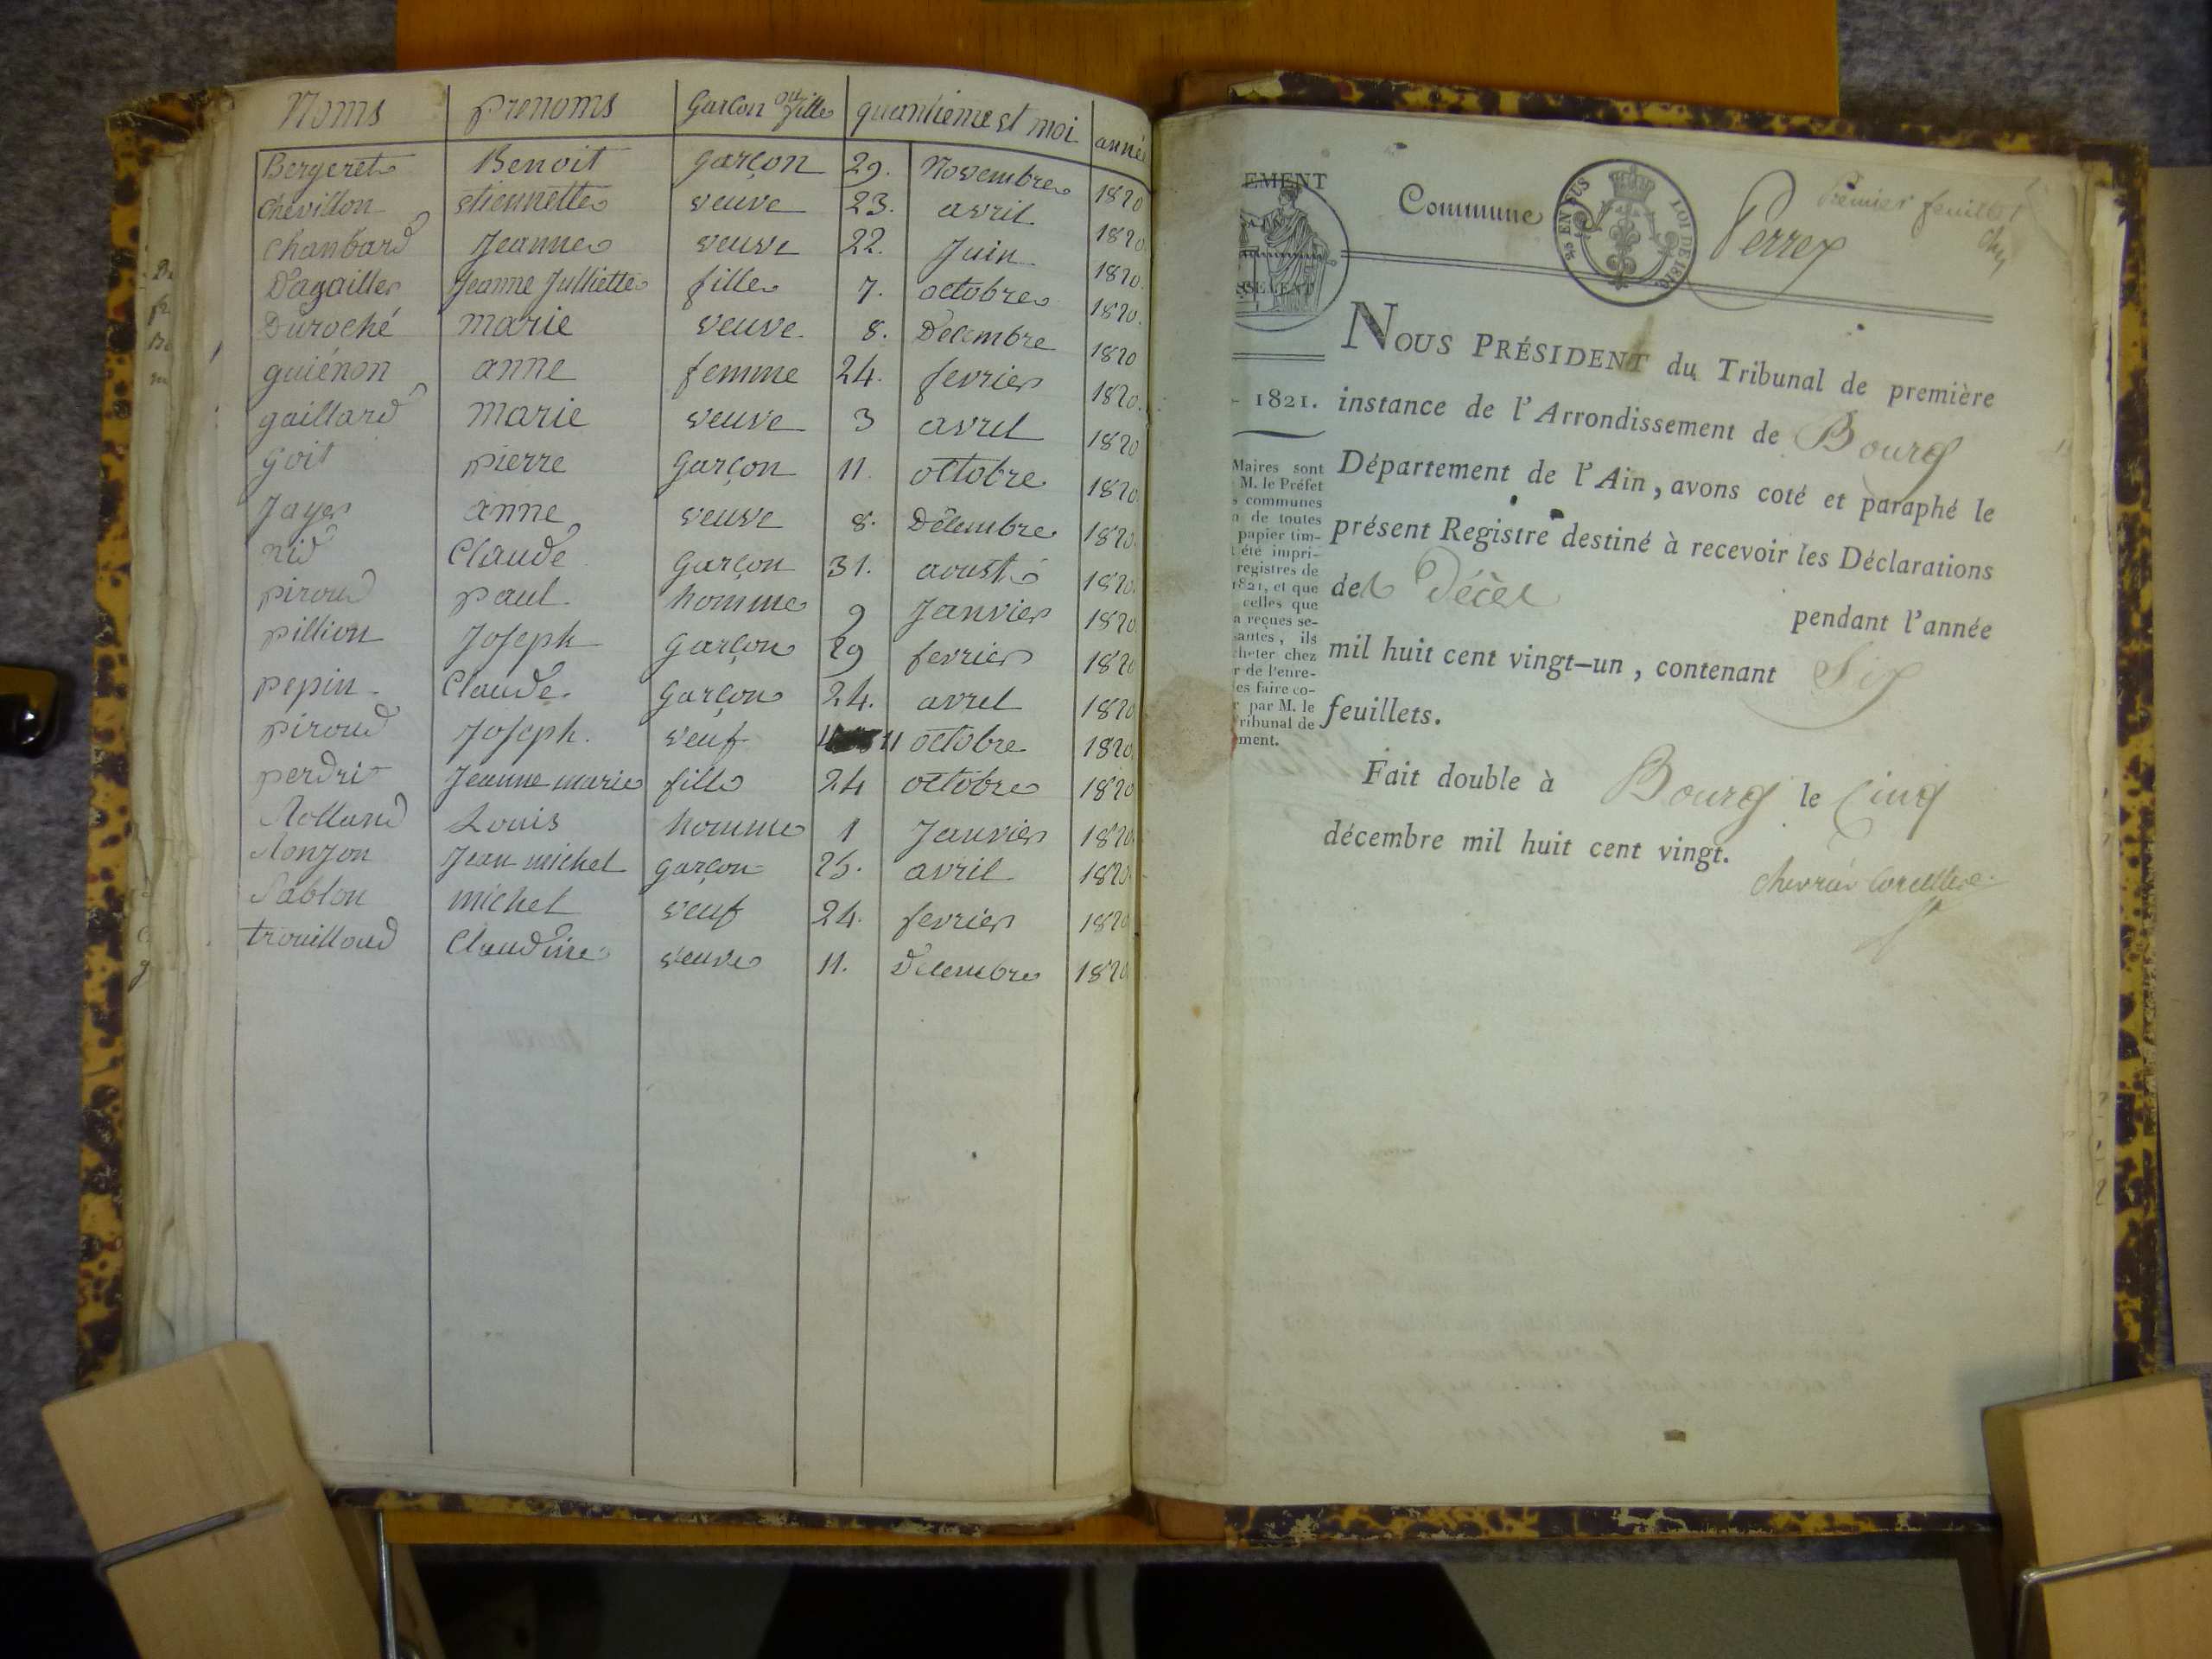 Noms prenoms Garcon ou fille quantieme et moi année
Bergeret Benoit garçon 29. Novembre 1820
Chevillon etiennette veuve 23. avril 1820.
Chanbard Jeanne veuve 22. Juin 1820.
Dagallier Jeanne Julliette fille 7. octobre 1820.
Duroché marie veuve. 8. Decembre 1820
guiénon anne femme 24. fevrier 1820.
gaillard marie veuve 3 avril 1820
goit pierre Garçon 11. octobre 1820.
Jayer anne veuve 8. Décembre 1820.
nid Claude garçon 31. aoust 1820.
piroud paul. homme 9 Janvier 1820.
pillion Joseph garçon 29 fevrier 1820
pepin. Claude. garçon 24. avril 1820
piroud Joseph. veuf 11 octobre 1820.
perdrix Jeanne marie fille 24 octobre 1820
Rolland Louis homme 1 Janvier 1820.
Ronjon Jean michel garçon 25. avril 1820.
Sablon michel veuf 24. fevrier 1820
trouilloud Claudine veuve 11. Decembre 1820
Premier feuillet
EMENT
Commune Perrex
25 EN SUS LOI DE 1816
NOUS PRÉSIDENT du Tribunal de première
- 1821. instance de l'Arrondissement de Bourg
Département de l'Ain, avons coté et paraphé le
présent Registre destiné à recevoir les Déclarations
des Décès pendant l'année
mil huit cent vingt-un, contenant Six
feuillets.
Fait double à Bourg le Cinq
décembre mil huit cent vingt.
Maires sont
M. le Préfet
s communes
n de toutes
papier tim-
t été impri-
registres de
1821, et que
celles que
a reçues se-
santes, ils
cheter chez
r de l'enre-
es faire co-
r par M. le
ribunal de
ment.